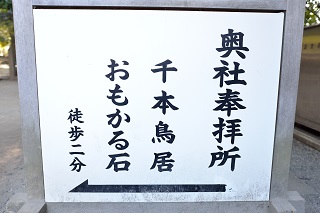 奥社奉拝所
千本鳥居
おもかる石
徒歩二分